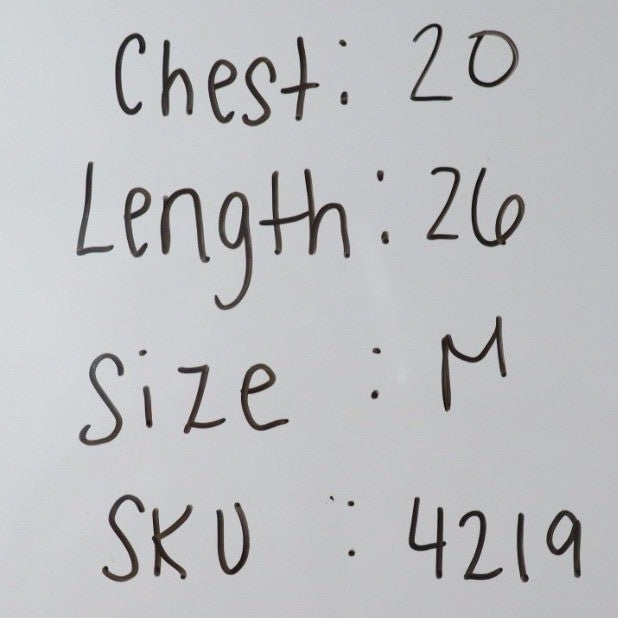 Chest: 20
Length: 26
Size : M
SKU : 4219